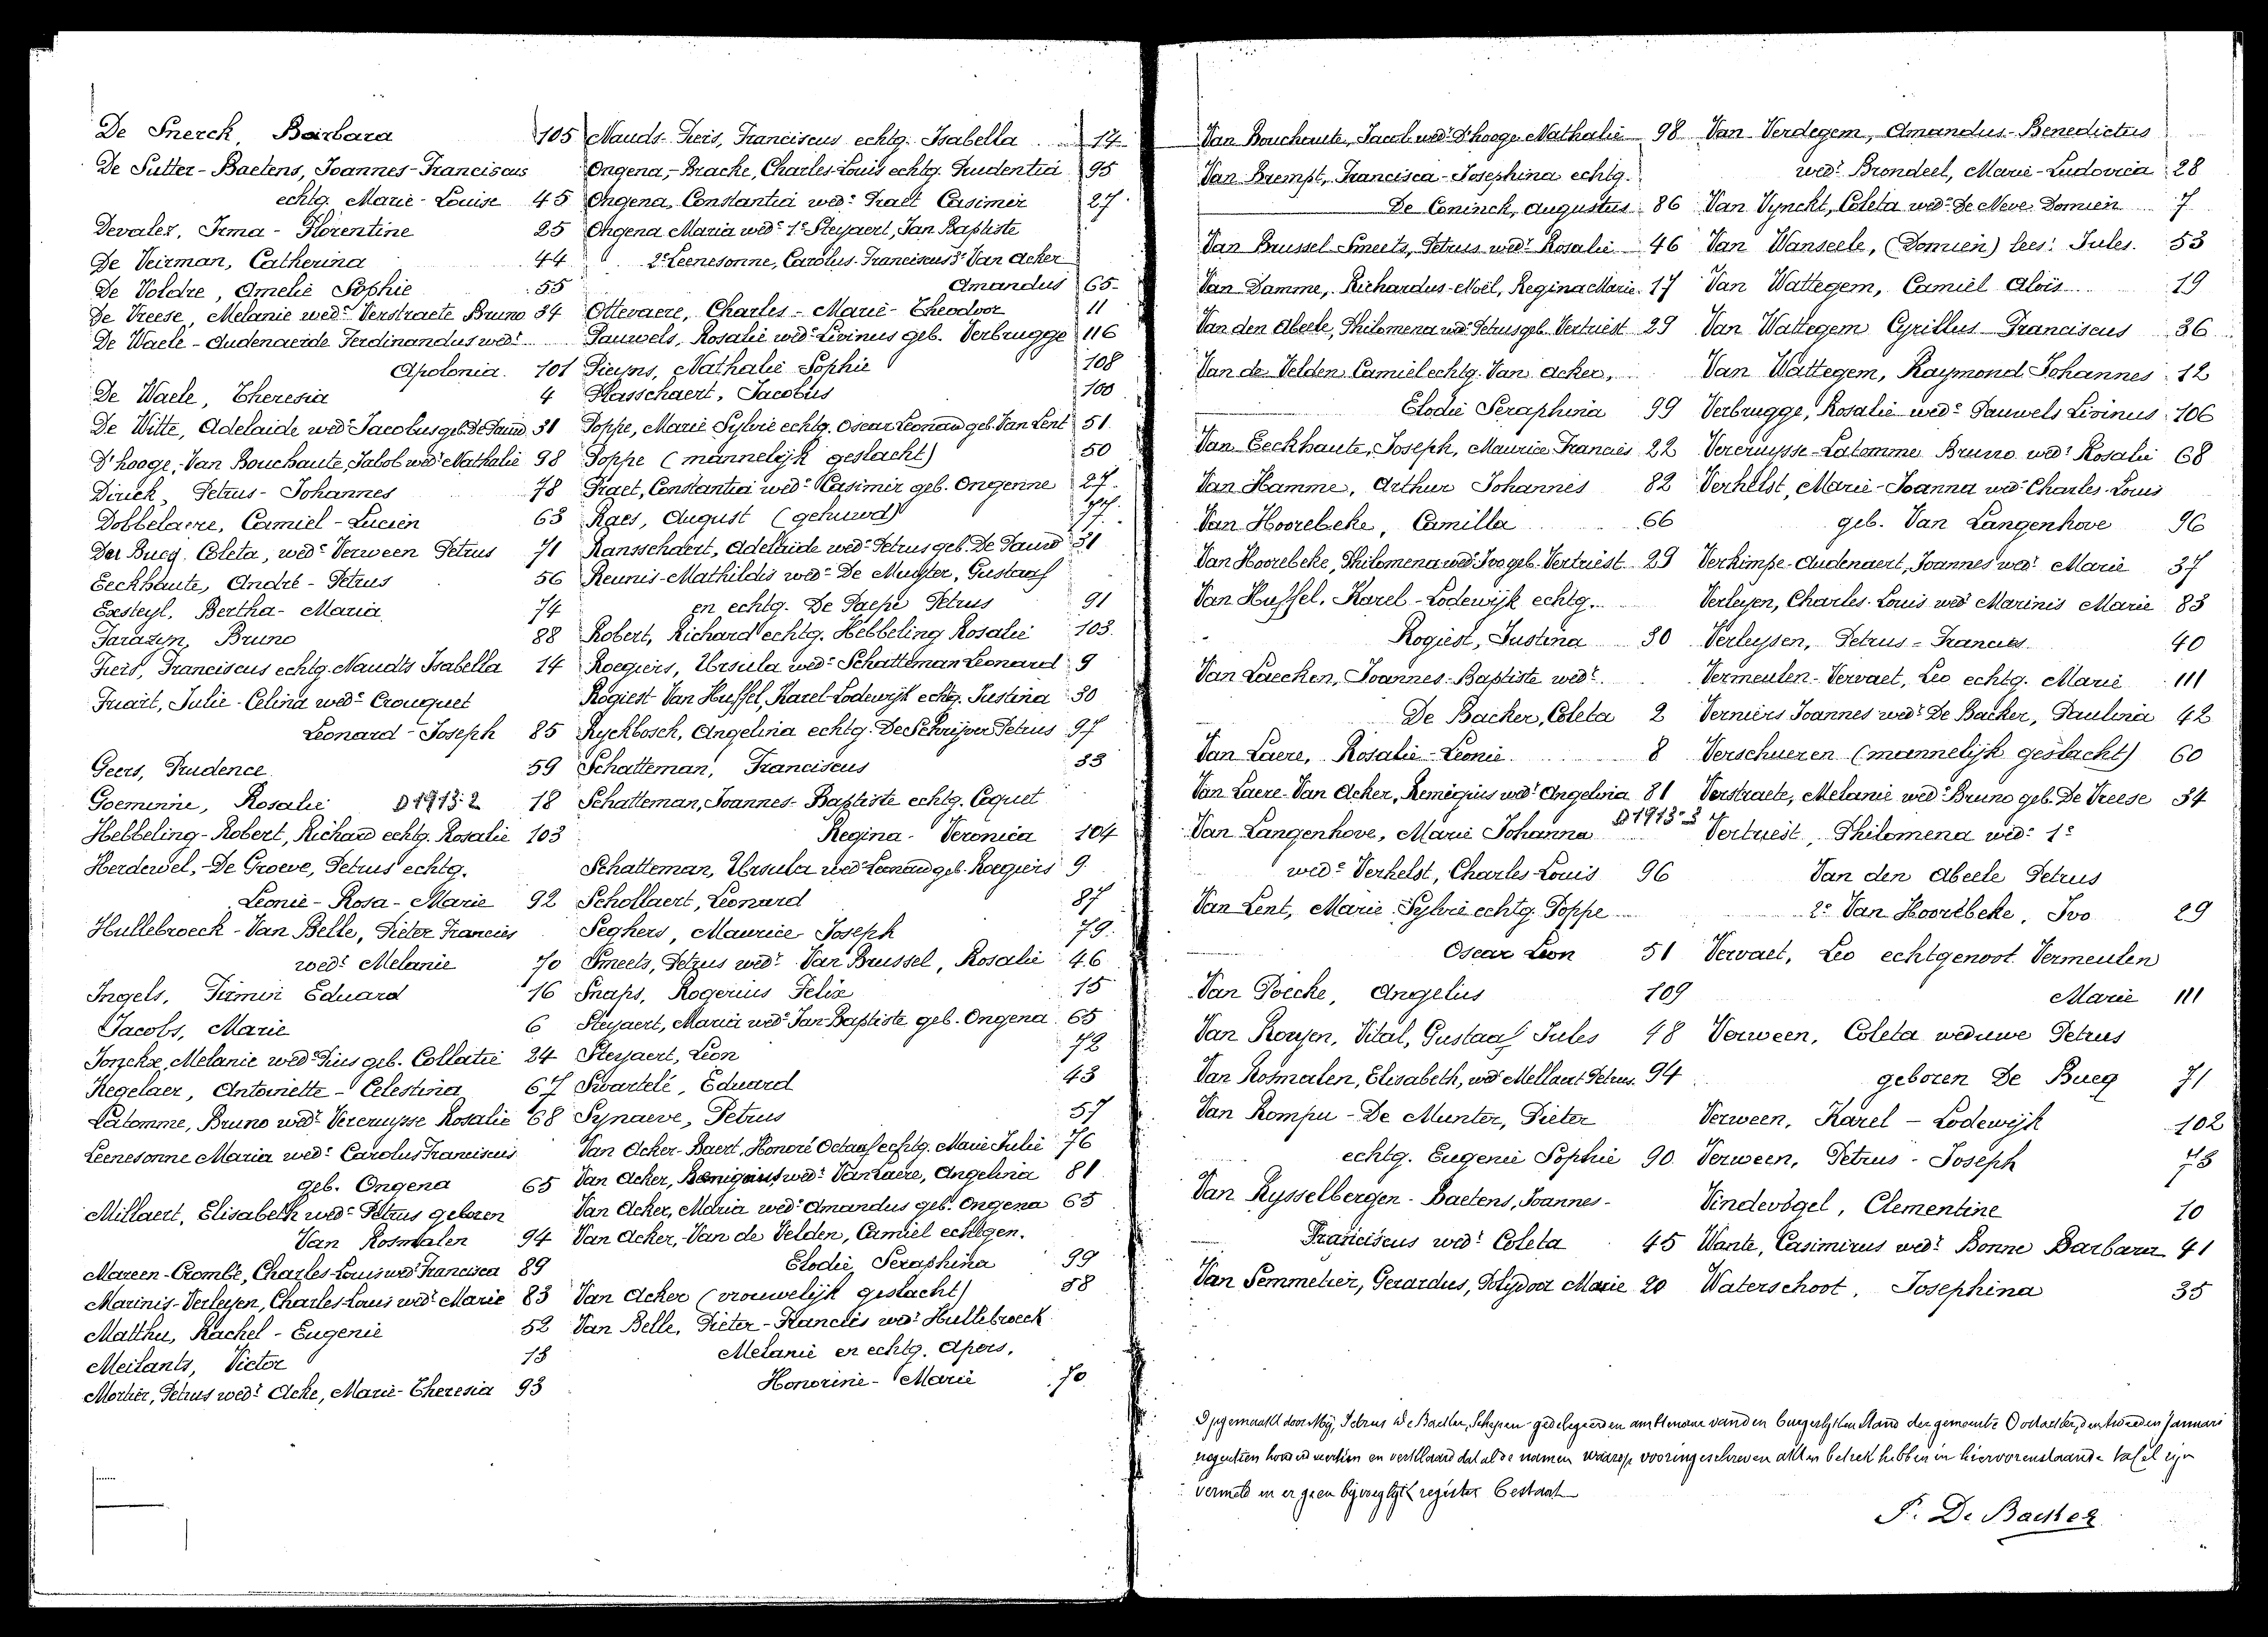 De Snerck, Barbara 105
De Sutter-Baetens, Joannes-Franciscus
echtg. Marie-Louise 45
Devales, Irma-Florentine 25
De Veirman, Catherina 44
De Voldre, Amelie Sophie 55
De Vreese, Melanie wede Verstraete Bruno 34
De Waele-Audenaerde Ferdinandus wedr
Apolonia. 101
De Waele, Theresia 4
De Witte, Adelaide wede Jacobus geb. De Pauw 31
D'hooge,-Van Bouchaute, Jabob wedr Nathalie 98
Dirick, Petrus-Johannes 78
Dobbelaere, Camiel-Lucien 63
Der Bueg Coleta, wede Verween Petrus 71
Eeckhaute, André-Petrus 56
Exsteyl, Bertha-Maria 74
Farazyn, Bruno 88
Fiers, Franciscus echtg. Naudts Isabella 14
Fruait, Julie-Celina wede Crouquet
Leonard-Joseph 85
Geers, Prudence 59
Goeminne, Rosalie D1913-2 18
Hebbeling-Robert, Richard echtg. Rosalie 103
Herdewel,-De Groeve, Petrus echtg.
Leonie-Rosa-Marie 92
Hullebroeck-Van Belle, Pieter Francies
wedr Melanie 70
Ingels, Firmin Eduard 16
Jacobs, Marie 6
Jonckx, Melanie wede Pius geb. Collatie 24
Kegelaer, Antoinette-Celestina 67
Latomme, Bruno wedr Vercruysse Rosalie 68
Leenesonne Maria wede Carolus Franciscus
geb. Ongena 65
Millaert, Elisabeth wede Petrus geboren
Van Rosmalen 94
Mareen-Crombé, Charles-Louis wedr Francisca 89
Marinis-Verleyen, Charles-Louis wedr Marie 83
Matthu, Rachel-Eugenie 52
Meilants, Victor 13
Mortier, Petrus wedr Acke, Marie-Theresia 93
Nauds-Fieis, Franciscus echtg. Isabella 14
Ongena,-Bracke, Charles-Louis echtg. Prudentia 95
Ongena, Constantia wede Praet Casimir 27
Ongena Maria wede 1e Steyaert, Jan Baptiste
2e Leenesonne, Carolus-Franciscus 3e Van Acker
Amandus 65
Ottevaere, Charles-Marie-Theodoor 11
Pauwels, Rosalie wede Livinus geb. Verbrugge 116
Pieyns, Nathalie Sophie 108
Plasschaert, Jacobus 100
Poppe, Marie Sylvie echtg. Oscar Leonard geb. Van Lent 51
Poppe (mannelijk geslacht) 50
Praet, Constantia wede Casimir geb. Ongenne 27
Raes, August (gehuwd)
Ransschaert, Adelaide wede Petrus geb. De Pauw 31
Reunis-Mathildis wede De Muyter, Gustaaf
en echtg. De Paepe Petrus 91
Robert, Richard echtg. Hebbeling Rosalie 103
Roegiers, Ursula wede Schatteman Leonard 9
Rogiest Van Huffel, Karel-Lodewijk echtg. Justina 30
Ryckbosch, Angelina echtg. De Schrijver Petrus 97
Schatteman, Franciscus 33
Schatteman, Joannes-Baptiste echtg. Cequet
Regina-Veronica 104
Schatteman, Ursula wede Leonard geb. Roegiers 9
Schollaert, Leonard 87
Seghers, Maurice Joseph 79
Smeets, Petrus wedr Van Brussel, Rosalie 46
Snaps, Rogerius Felix 15
Steyaert, Maria wede Jan-Baptiste geb. Ongena 65
Steyaert, Leon 72
Swartelé, Eduard 43
Synaeve, Petrus 57
Van Acker-Baert, Honoré Octaaf echtg. Marie Julie 76
Van Acker, Remigius wedr Van Laere, Angelina 81
Van Acker, Maria wede Amandus geb. Ongena 65
Van Acker,-Van de Velden, Camiel echtgen.
Elodie Seraphina 99
Van Acker (vrouwelijk geslacht) 58
Van Belle, Pieter-Francies wedr Hullebroeck
Melanie en echtg. Apers,
Honorine-Marie 70
Van Bouchaute, Jacob wedr D'hooge Nathalie 98
Van Brempt, Francisca-Josephina echtg.
De Coninck, Augustus 86
Van Brussel-Smeets, Petrus wedr Rosalie 46
Van Damme, Richardus-Noël, Regina Marie 17
Van den Abeele, Philomena wede Petrus geb. Vertriest 29
Van de Velden Camiel echtg. Van Acker,
Elodie Seraphina 99
Van Eeckhaute, Joseph, Maurice Francies 22
Van Hamme, Arthur Johannes 82
Van Hoorebeke, Camilla 66
Van Hoorebeke, Philomena wede Ivo geb. Vertriest 29
Van Huffel, Karel-Lodewijk echtg.
Rogiest, Justina 30
Van Laecken, Joannes-Baptiste wedr
De Backer, Coleta 2
Van Laere, Rosalie-Leonie 8
Van Laere-Van Acker, Remigius wedr Angelina 81
Van Langenhove, Marie Johanna D1913-3
wede Verhelst, Charles Louis 96
Van Lent, Marie Sylvie echtg. Poppe
Oscar Leon 51
Van Poecke, Angelus 109
Van Royen, Vital, Gustaaf Jules 48
Van Rosmalen, Elisabeth, wede Mellaert Petrus 94
Van Rompu-De Munter, Pieter
echtg. Eugenie Sophie 90
Van Rysselbergen-Baetens, Joannes-
Franciscus wedr Coleta 45
Van Semmelier, Gerardus, Polydoor Marie 20
Van Verdegem, Amandus-Benedictus
wedr Brondeel, Marie-Ludovica 28
Van Vynckt, Coleta wede De Neve Domien 7
Van Wanseele, (Domien) lees: Jules. 53
Van Wattegem, Camiel Aloïs 19
Van Wattegem Cyrillus Franciscus 36
Van Wattegem, Raymond Johannes 12
Verbrugge, Rosalie wede Pauwels Livinus 106
Vercruysse-Latomme Bruno wedr Rosalie 68
Verhelst, Marie-Joanna wede Charles-Louis
geb. Van Langenhove 96
Verkimpe-Audenaert, Joannes wedr Marie 37
Verleyen, Charles-Louis wedr Marinis Marie 83
Verleysen, Petrus-Francies 40
Vermeulen-Vervaet, Leo echtg. Marie 111
Verniers Joannes wedr De Backer, Paulina 42
Verschueren (mannelijk geslacht) 60
Verstraete, Melanie wede Bruno geb. De Vreese 34
Vertriest, Philomena wede 1e
Van den Abeele Petrus
2e Van Hoorebeke, Ivo 29
Vervaet, Leo echtgenoot Vermeulen
Marie 111
Verween, Coleta weduwe Petrus
geboren De Bueg 71
Verween, Karel-Lodewijk 102
Verween, Petrus-Joseph 73
Vindevogel, Clementine 10
Wante, Casimirus wedr Bonne Barbara 41
Waterschoot, Josephina 35
Opgemaakt door Mij, Petrus De Backer, Schepen gedelegeerden ambtenaar van den burgerlyken stand der gemeente Oostacker, den tweeden Januari
negentien honderd veertien en verklaard dat al de namen waarop vooringeschreven akten betrek hebben in hiervorenstaande tafel zijn
vermeld en er geen bijvoeglijk register bestaat
P. De Backer